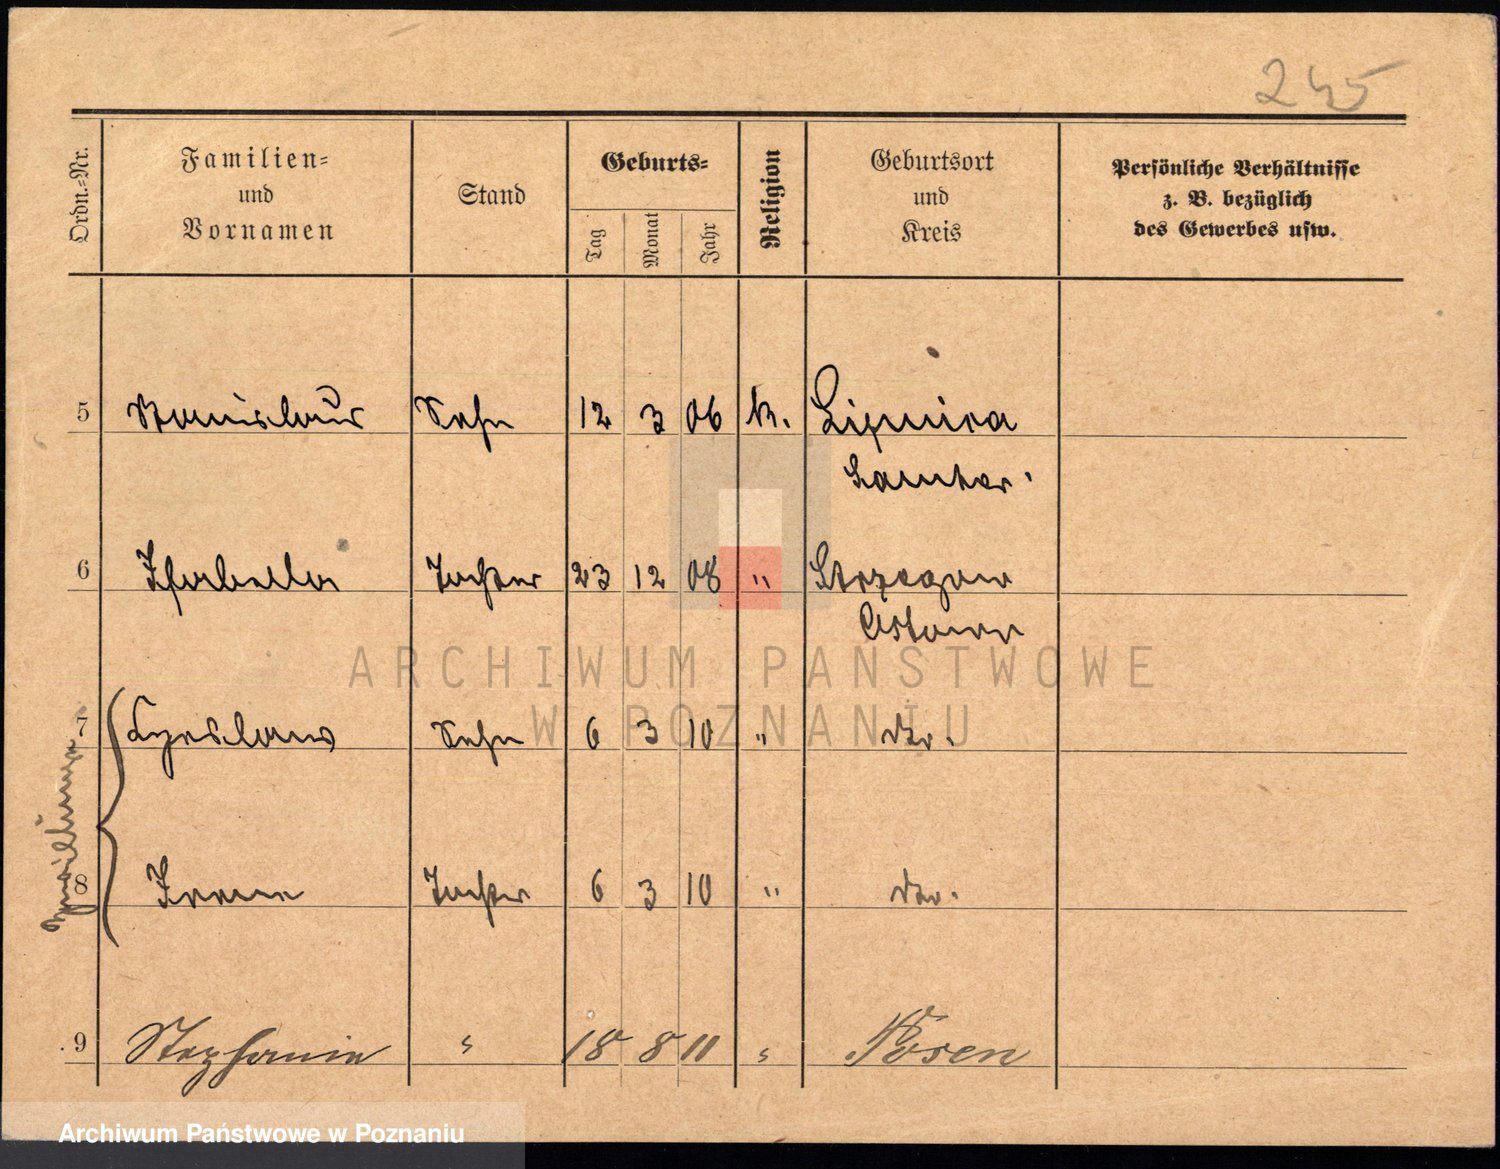 245
Ordn.-Nr.
Familien-
und
Vornamen
Stand
Geburts-
Tag
Monat
Jahr
Religion
Geburtsort
und
Kreis
Persönliche Verhältnisse
z. B. bezüglich
des Gewerbes usw.
5 Stanislaus Sohn 12 3 06 k.
Samter.
6 Isabella Tochter 23 12 08 "
7 Sohn 6 3 10 " do.
Zwillinge
8 Irene Tochter 6 3 10 " do.
9 Stephanie " 18 8 11 " Posen
ARCHIWUM PAŃSTWOWE
W POZNANIU
Archiwum Państwowe w Poznaniu